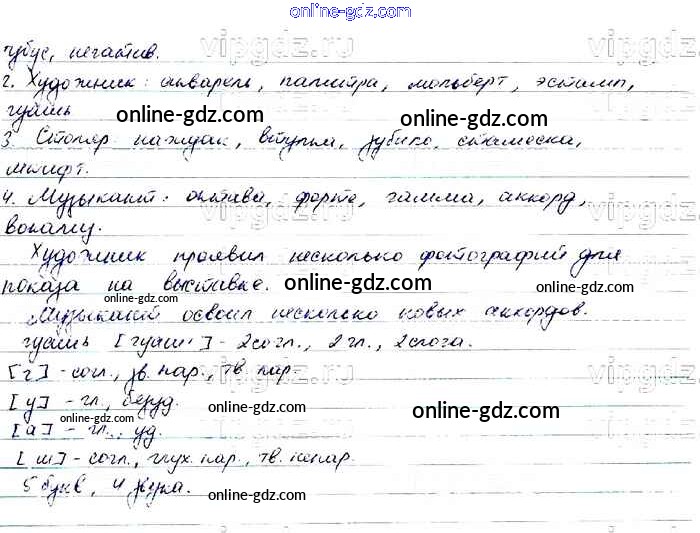 online-gdz.com
тубус, негатив.
vipgdz.ru
2. Художник: акварель, палитра, мольберт, эстамп,
гуашь
online-gdz.com
online-gdz.com
3. Столяр: наждак, втулка, зубило, стамеска,
штифт.
4. Музыкант: октава, форте, гамма, аккорд,
вокализ.
vipgdz.ru
Художник проявил несколько фотографий для
показа на выставке.
online-gdz.com
online-gdz.com
online-gdz.com
Музыкант освоил несколько новых аккордов.
гуашь [гуаш] - 2согл., 2 гл., 2слога.
[г] - согл., зв. пар., тв. пар.
vipgdz.ru
[у] - гл., безуд.
online-gdz.com
online-gdz.com
[а] - гл., уд.
[ш] - согл., глух. пар., тв. непар.
5 букв, 4 звука.
online-gdz.com
online-gdz.com
vipgdz.ru